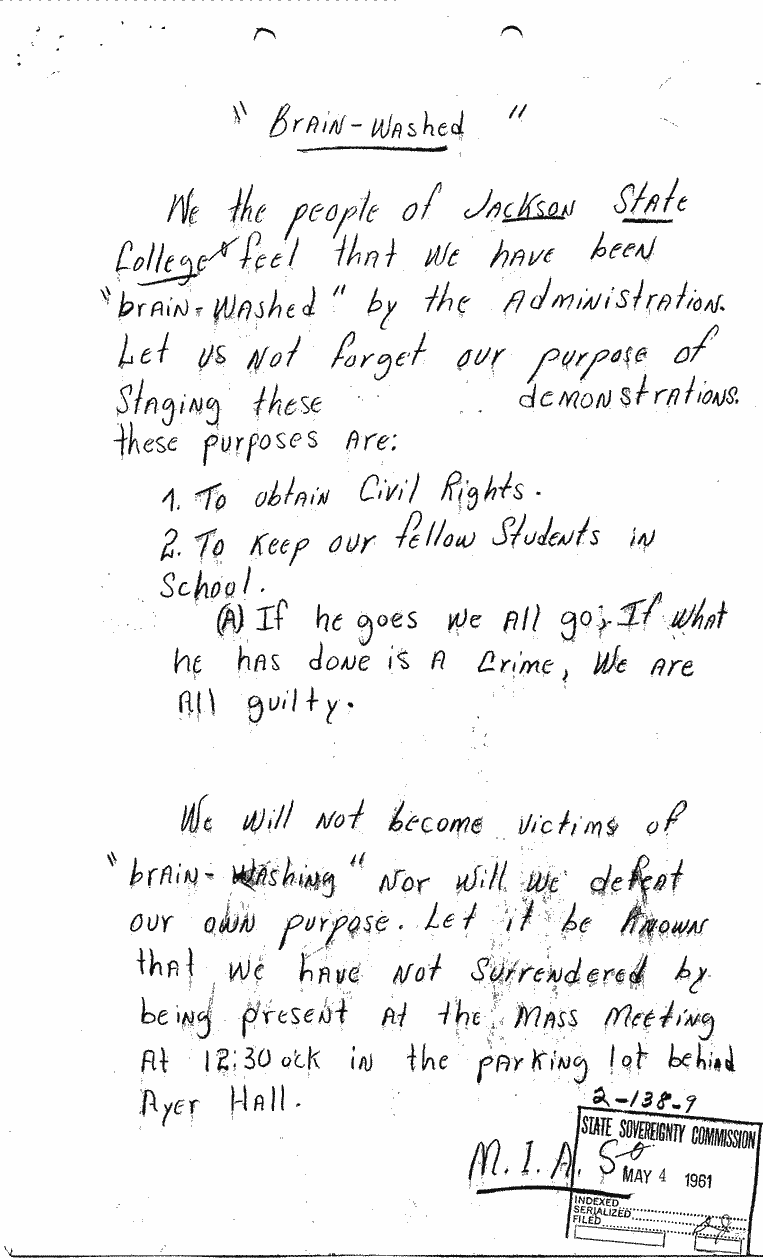 " Brain-Washed "
We the people of Jackson State
College feel that we have been
"brain-washed" by the Administration.
Let us not forget our purpose of
Staging these demonstrations.
these purposes are:
1. To obtain Civil Rights.
2. To keep our fellow Students in
School.
(A) If he goes we all go; If what
he has done is a crime, we are
All guilty.
We will not become victims of
"brain-washing" nor will we defeat
our own purpose. Let it be known
that we have not surrendered by
being present at the mass meeting
At 12:30 ock in the parking lot behind
Ayer Hall.
2-138-9
M.I.A.
STATE SOVEREIGNTY COMMISSION
MAY 4 1961
INDEXED
SERIALIZED
FILED